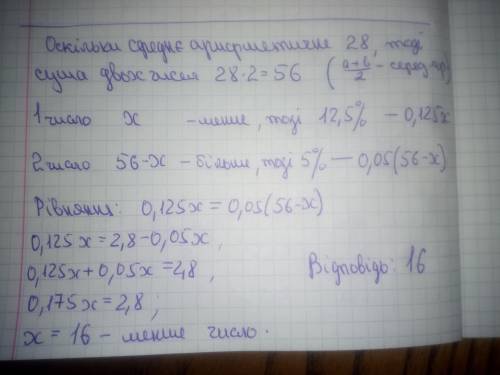 Оскільки середнє арифметичне 28, тоді
сума двох чисел 28·2=56 (a+b/2 - серед. ар)
1 число x - менше, тоді 12,5% - 0,125x
2 число 56-x - більше, тоді 5% - 0,05(56-x)
Рівняння: 0,125x = 0,05(56-x)
0,125x = 2,8-0,05x,
0,125x+0,05x = 2,8,
0,175x = 2,8;
x = 16 - менше число.
Відповідь: 16